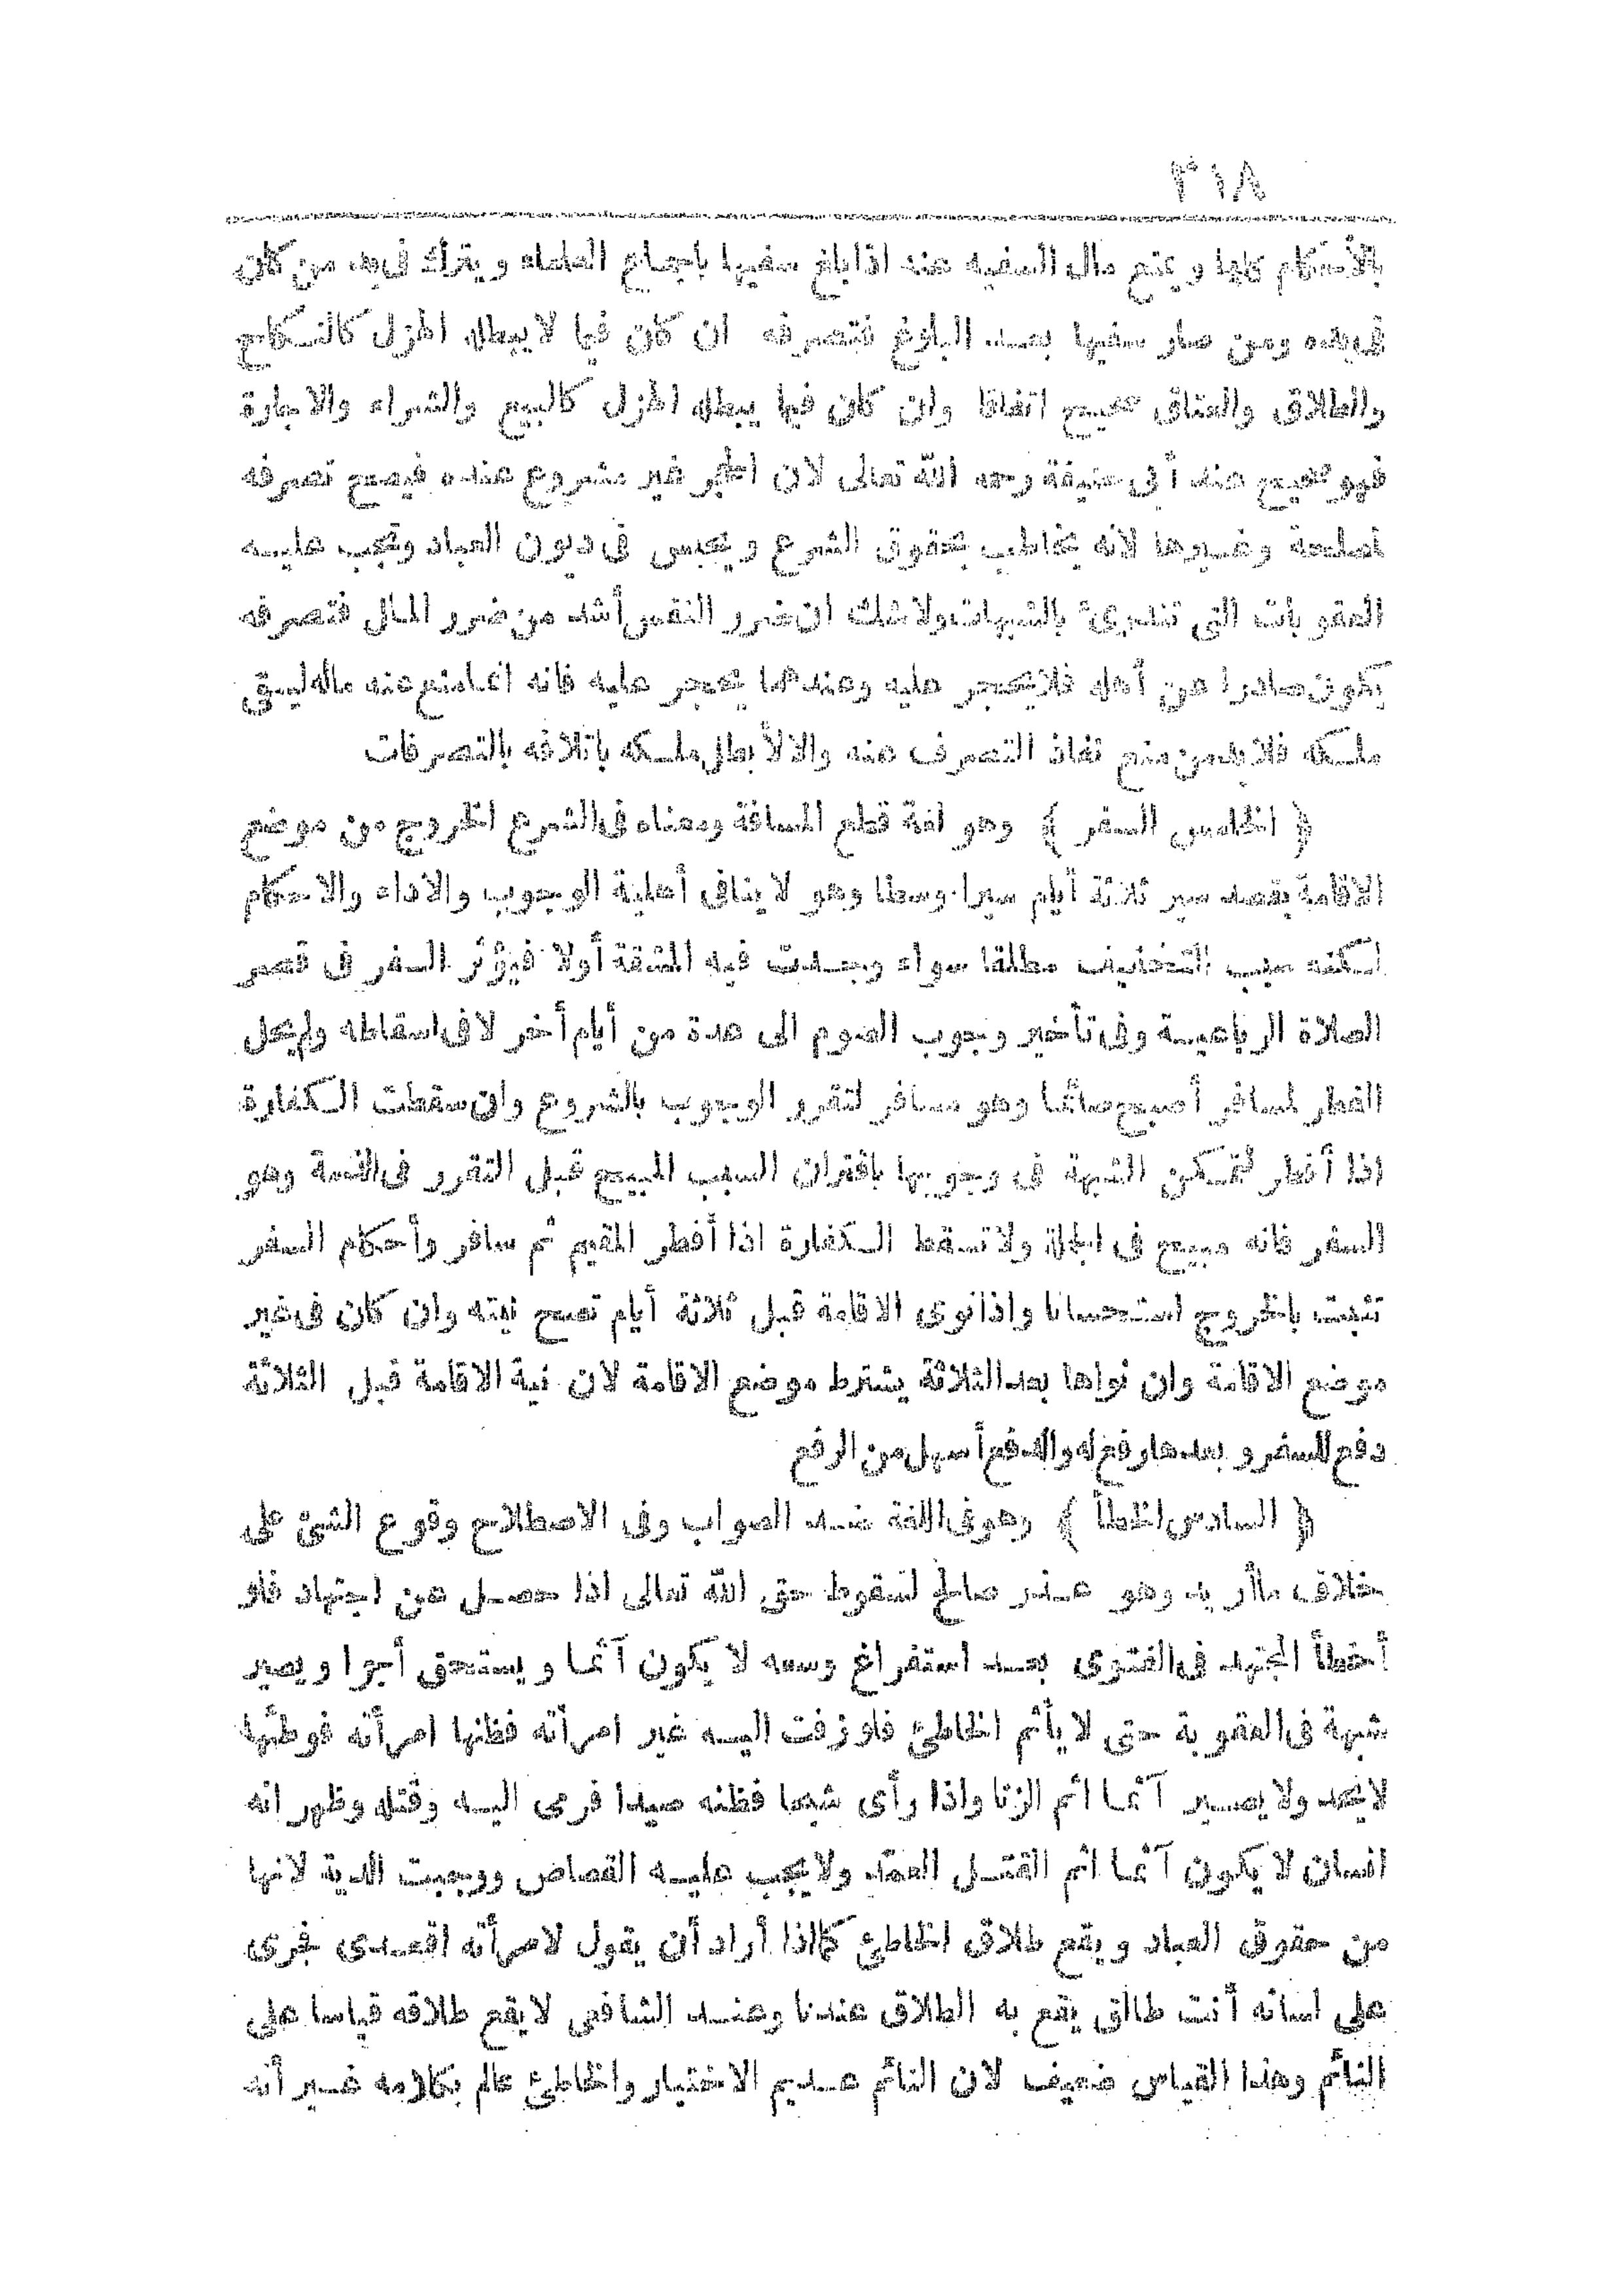 ٣١٨
بالأحكام كلها ويمنع مال السفيه عنه اذا بلغ سفيها باجماع العلماء ويترك في يد من كان
في يده ومن صار سفيها بعد البلوغ فتصرفه ان كان فيما لا يبطله الهزل كالنكاح
والطلاق والعتاق صحيح اتفاقا وان كان فيما يبطله الهزل كالبيع والشراء والاجارة
فهو صحيح عند أبى حنيفة رحمه الله تعالى لان الحجر غير مشروع عنده فيصح تصرفه
لمصلحة وغيرها لأنه يخاطب بحقوق الشرع ويحبس فى ديون العباد وتجب عليه
العقوبات التى تندرئ بالشبهات ولا شك ان ضرر النفس أشد من ضرر المال فتصرفه
يكون صادرا عن أهله فلا يحجر عليه وعندهما يحجر عليه فانه انما منع عنه ماله ليبقى
ملكه فلا بد من منع نفاذ التصرف عنه والا لأبطل ملكه باتلافه بالتصرفات
﴿ الخامس السفر ﴾ وهو لغة قطع المسافة ومعناه فى الشرع الخروج من موضع
الاقامة بقصد سير ثلاثة أيام سيرا وسطا وهو لا ينافى أهلية الوجوب والاداء والاحكام
لكنه سبب التخفيف مطلقا سواء وجدت فيه المشقة أولا فيؤثر السفر فى قصر
الصلاة الرباعية وفى تأخير وجوب الصوم الى عدة من أيام أخر لا فى اسقاطه ولم يحل
الفطر لمسافر أصبح صائما وهو مسافر لتقرر الوجوب بالشروع وان سقطت الكفارة
اذا أفطر لتمكن الشبهة فى وجوبها باقتران السبب المبيح قبل التقرر فى الذمة وهو
السفر فانه مبيح فى الجملة ولا تسقط الكفارة اذا أفطر المقيم ثم سافر وأحكام السفر
تثبت بالخروج استحسانا واذا نوى الاقامة قبل ثلاثة أيام تصح نيته وان كان فى غير
موضع الاقامة وان نواها بعد الثلاثة يشترط موضع الاقامة لان نية الاقامة قبل الثلاثة
دفع للسفر وبعدها رفع له والدفع أسهل من الرفع
﴿ السادس الخطأ ﴾ وهو فى اللغة ضد الصواب وفى الاصطلاح وقوع الشئ على
خلاف ما أريد وهو عذر صالح لسقوط حق الله تعالى اذا حصل عن اجتهاد فلو
أخطأ المجتهد فى الفتوى بعد استفراغ وسعه لا يكون آثما ويستحق أجرا ويصير
شبهة فى العقوبة حتى لا يأثم الخاطئ فلو زفت اليه غير امرأته فظنها امرأته فوطئها
لا يحد ولا يصير آثما اثم الزنا واذا رأى شبحا فظنه صيدا فرمى اليه وقتله وظهر انه
انسان لا يكون آثما اثم القتل العمد ولا يجب عليه القصاص ووجبت الدية لانها
من حقوق العباد ويقع طلاق الخاطئ كما اذا أراد أن يقول لامرأته اقعدى فجرى
على لسانه أنت طالق يقع به الطلاق عندنا وعند الشافعى لا يقع طلاقه قياسا على
النائم وهذا القياس ضعيف لان النائم عديم الاختيار والخاطئ عالم بكلامه غير أنه